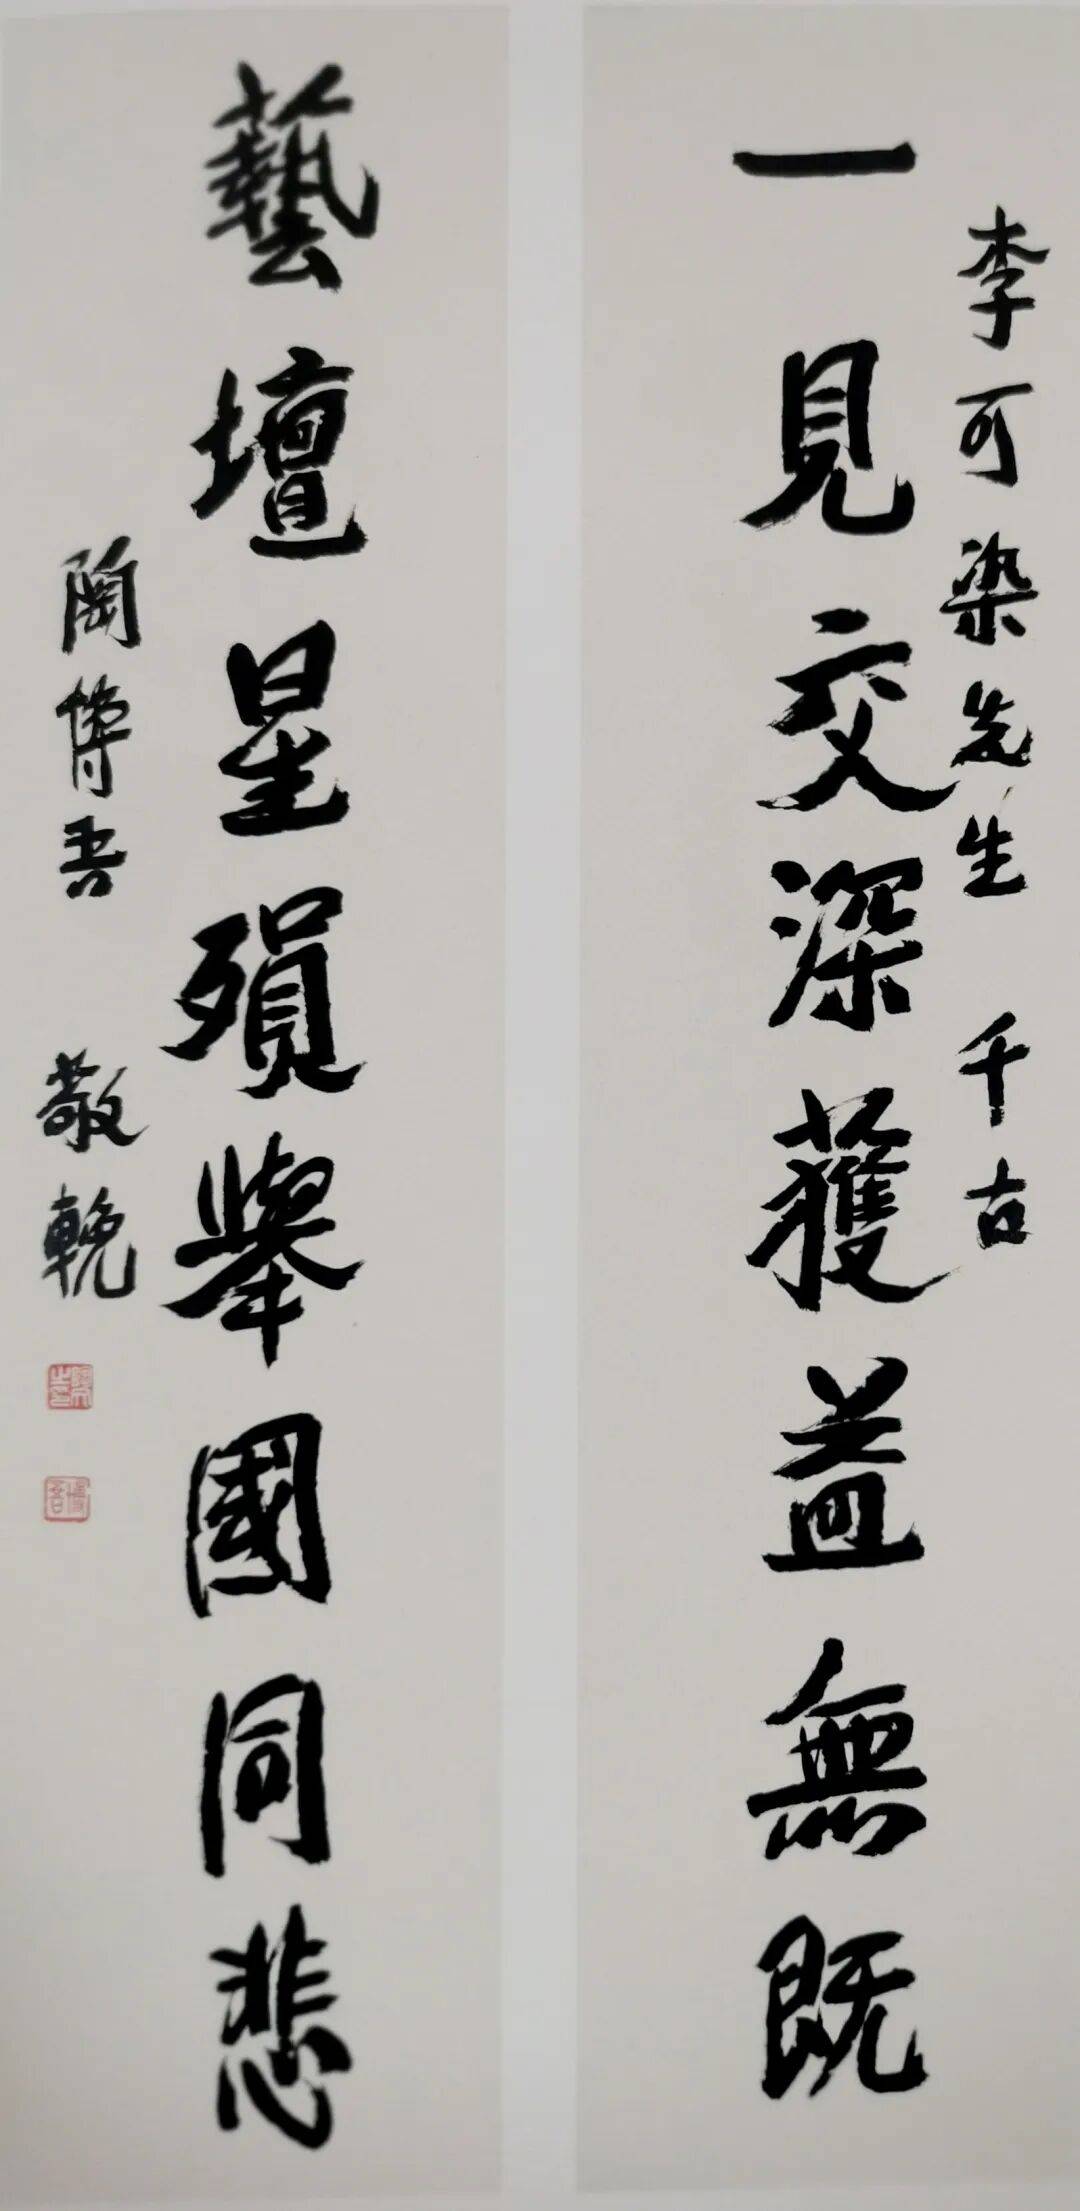 李可染先生 千古
一見交深獲益無既
藝壇星殞舉國同悲
陶博吾 敬輓